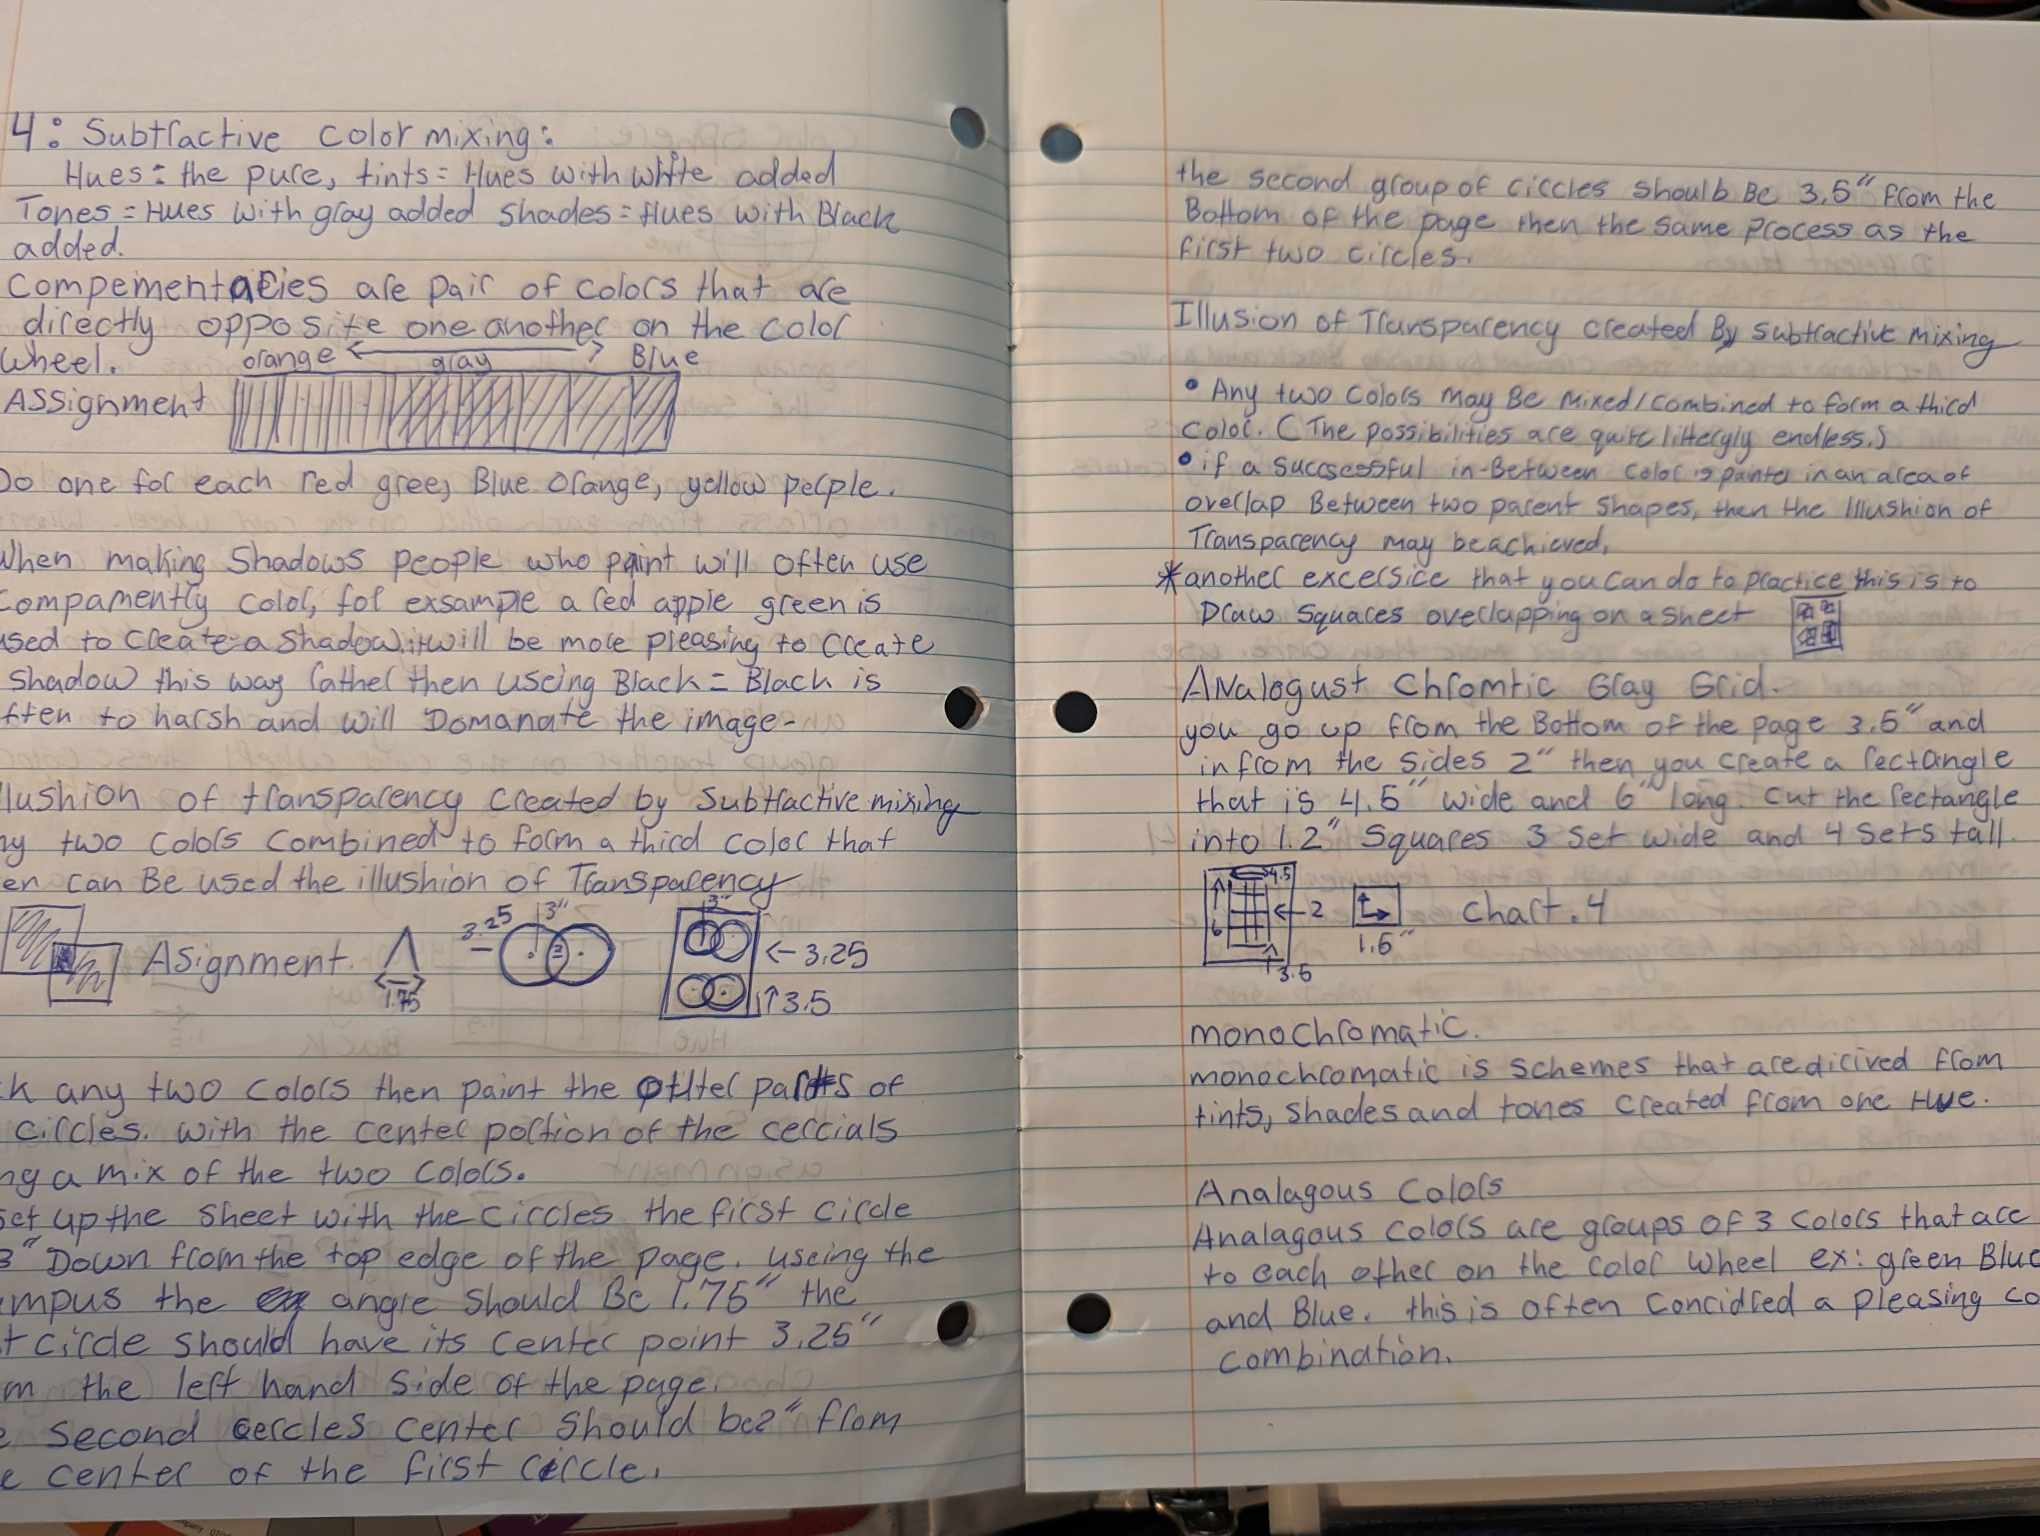 4: Subtractive color mixing:
Hues = the pure, tints = Hues with white added
Tones = Hues with gray added shades = Hues with Black
added.
Compementaries are pair of colors that are
directly opposite one another on the color
wheel.
orange gray Blue
Assignment
Do one for each red green, Blue orange, yellow perple.
When making Shadows people who paint will often use
Compamently color, for exsample a red apple green is
used to create a shadow. it will be more pleasing to create
shadow this way rather then useing Black = Black is
ften to harsh and will Domanate the image-
lushion of transparency created by Subtractive mixing
ny two colors combined to form a third color that
en can Be used the illushion of Transparency
Asignment.
1.75
3.25 3"
2
3"
← 3.25
↑ 3.5
k any two colors then paint the other parts of
circles. with the center portion of the cercials
ng a mix of the two colors.
set up the sheet with the circles the first circle
3" Down from the top edge of the page. useing the
mpus the angle should Be 1.75" the
t circle should have its center point 3.25"
m the left hand side of the page.
e second cercles center should be 2" from
e center of the first circle.
the second group of circles should Be 3.5" from the
Bottom of the page then the same process as the
first two circles.
Illusion of Transparency created By subtractive mixing
• Any two colors may Be mixed/combined to form a third
color. (The possibilities are quite littergly endless.)
• if a succsessful in-Between color is painter in an area of
overlap Between two parent shapes, then the Illushion of
Transparency may be achieved.
* another excersice that you can do to practice this is to
Draw squares overlapping on a sheet
Analogust Chromtic Gray Grid.
you go up from the Bottom of the page 3.5" and
in from the sides 2" then you create a rectangle
that is 4.5" wide and 6" long. cut the rectangle
into 1.2" squares 3 set wide and 4 sets tall.
4.5
6
← 2
3.5
1.5"
Chart. 4
monochromatic.
monochromatic is schemes that are dirived from
tints, shades and tones created from one Hue.
Analagous Colors
Analagous colors are groups of 3 colors that are
to each other on the color wheel ex: green Blue
and Blue. this is often concidred a pleasing co
combination.